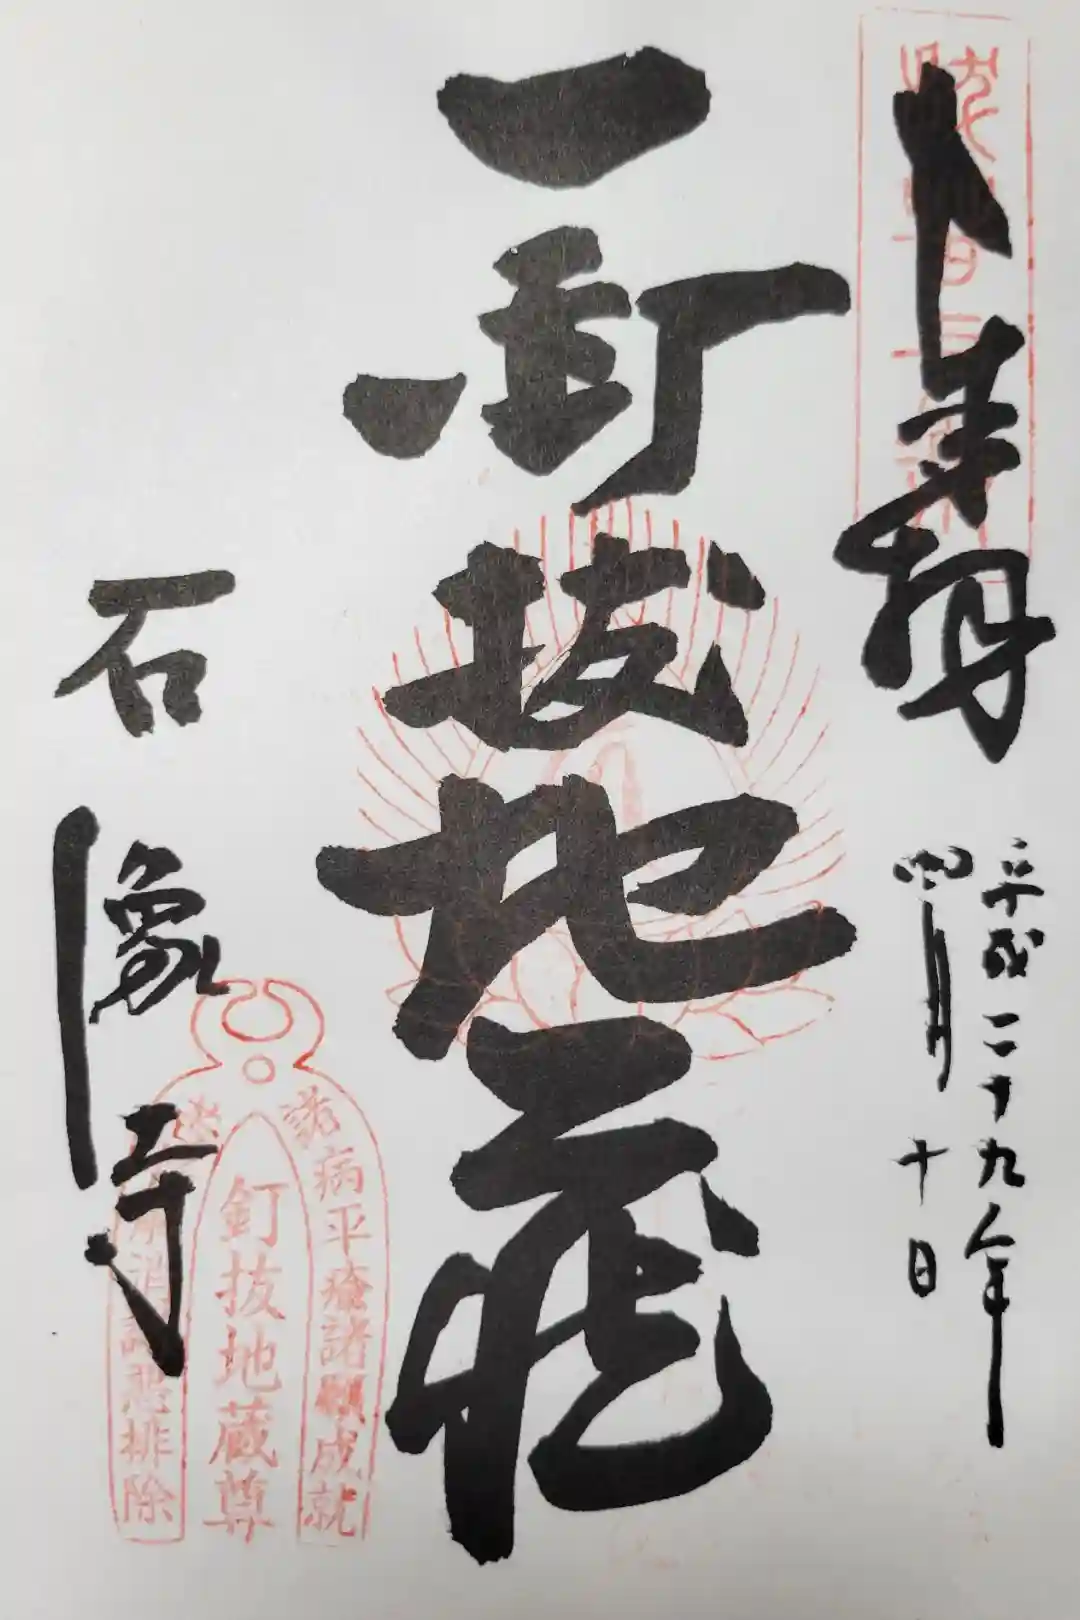 奉拝
平成二十九年
四月
十日
釘抜地蔵
石像寺
諸病平癒諸願成就
釘抜地蔵尊
消諸悪排除